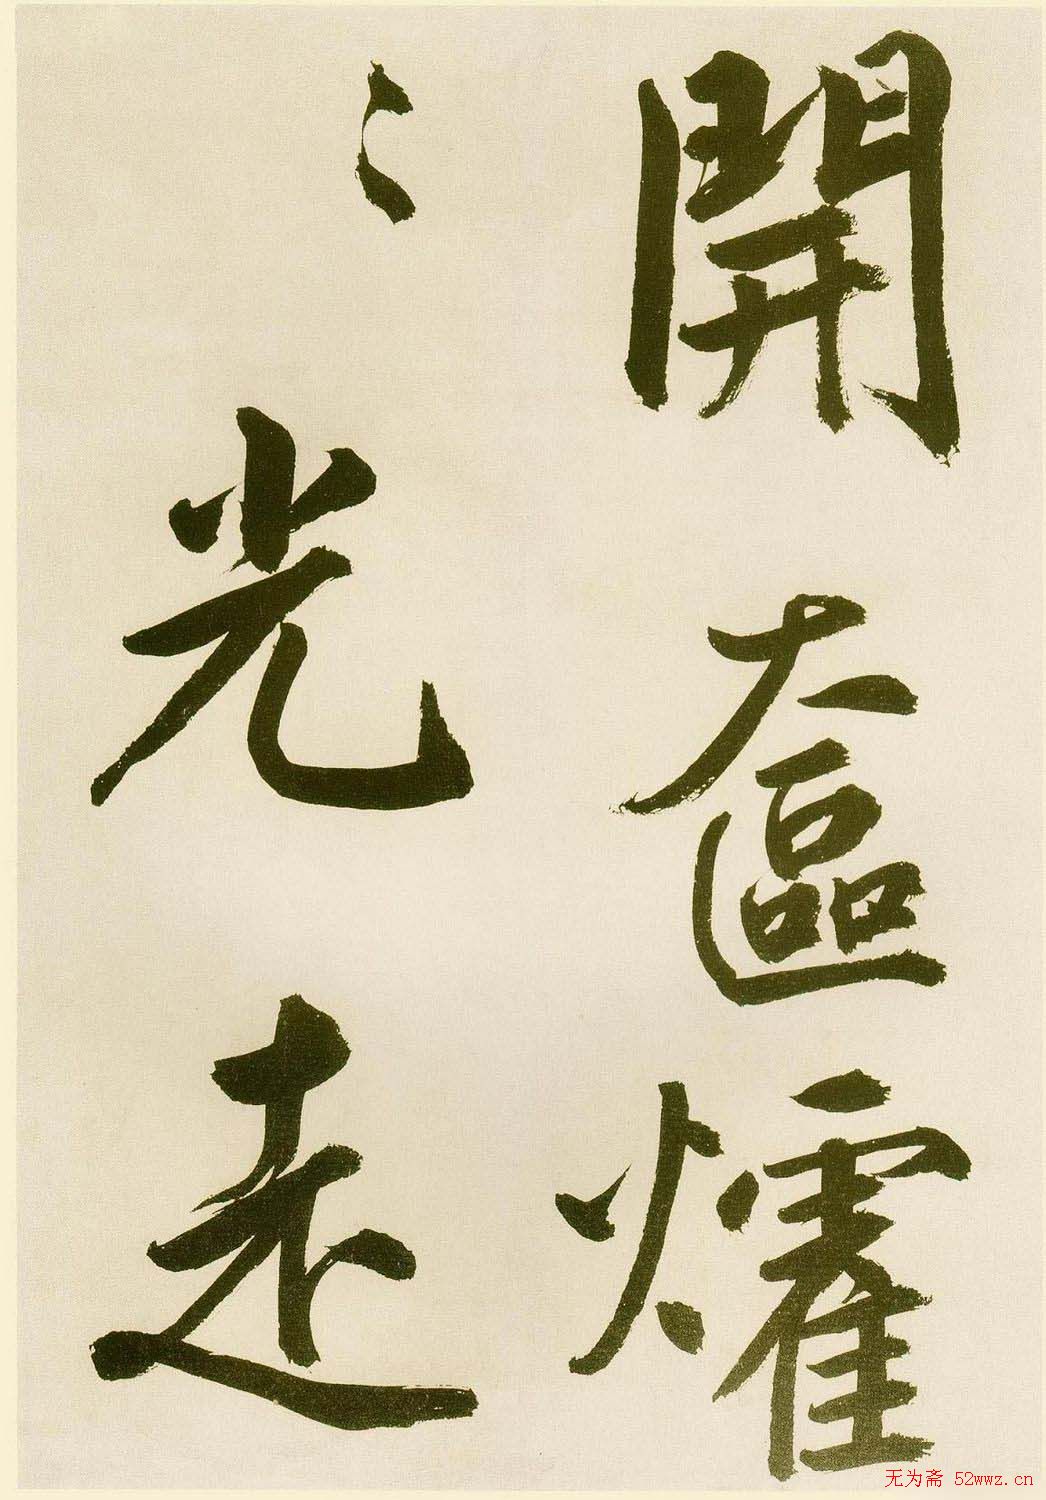 開奩㸌
〻光走
无为斋 52wwz.cn